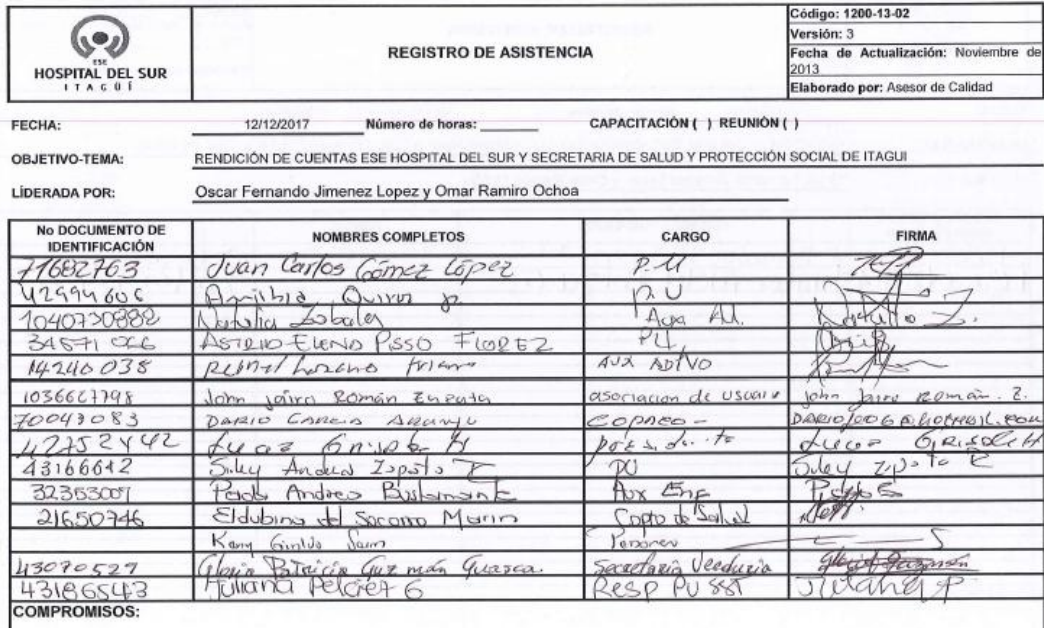 ESE
HOSPITAL DEL SUR
ITAGÜÍ
REGISTRO DE ASISTENCIA
Código: 1200-13-02
Versión: 3
Fecha de Actualización: Noviembre de
2013
Elaborado por: Asesor de Calidad
FECHA: 12/12/2017 Número de horas: CAPACITACIÓN ( ) REUNIÓN ( )
OBJETIVO-TEMA: RENDICIÓN DE CUENTAS ESE HOSPITAL DEL SUR Y SECRETARIA DE SALUD Y PROTECCIÓN SOCIAL DE ITAGUI
LÍDERADA POR: Oscar Fernando Jimenez Lopez y Omar Ramiro Ochoa
No DOCUMENTO DE IDENTIFICACIÓN NOMBRES COMPLETOS CARGO FIRMA
71682763 Juan Carlos Gómez López P.U
42994606 Quiroz P.U
1040730882 Natalia Aux Ad.
ASTRID ELENA PISSO FLOREZ PU
14240038 AUX ADTVO
1036627798 John jairo Román Zapata asociacion de usuario john jairo Román. Z.
70043083 DARIO GARCIA COPACO-
42752442
43166642 Siley Andrea Zapata PU Siley Zapata
32353007 Andrea Bustamante Aux Enf
21650746 Eldubina del Socorro Marin Copto de Salud
43070527 Gloria Patricia Guzmán Guasca. Secretaria Veeduria
43186543 Juliana 6 Resp PU SST Juliana P
COMPROMISOS: